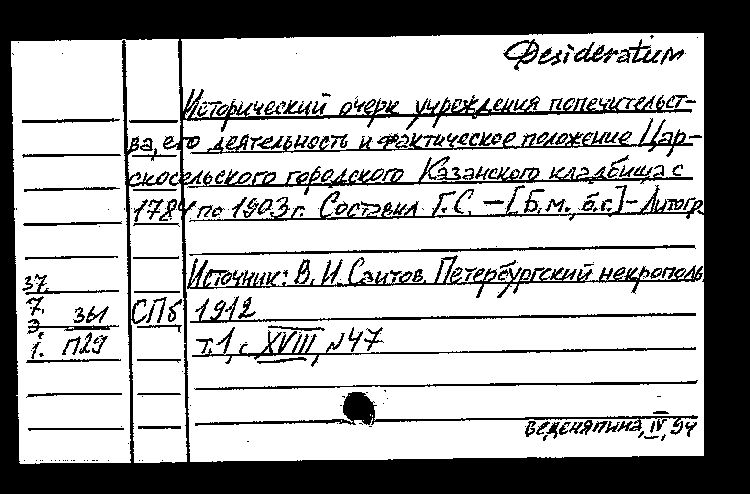 Desideratum
Исторический очерк учреждения попечительст-
ва, его деятельность и фактическое положение Цар-
скосельского городского Казанского кладбища с
1784 по 1903 г. Составил Г.С. — [Б.м., б.г.] - Литогр
Источник: В. И. Саитов. Петербургский некрополь
37.
7. СПб, 1912
Э. 361
i. П29 т.1, с XVIII, №47
Веденяпина, IV, 94